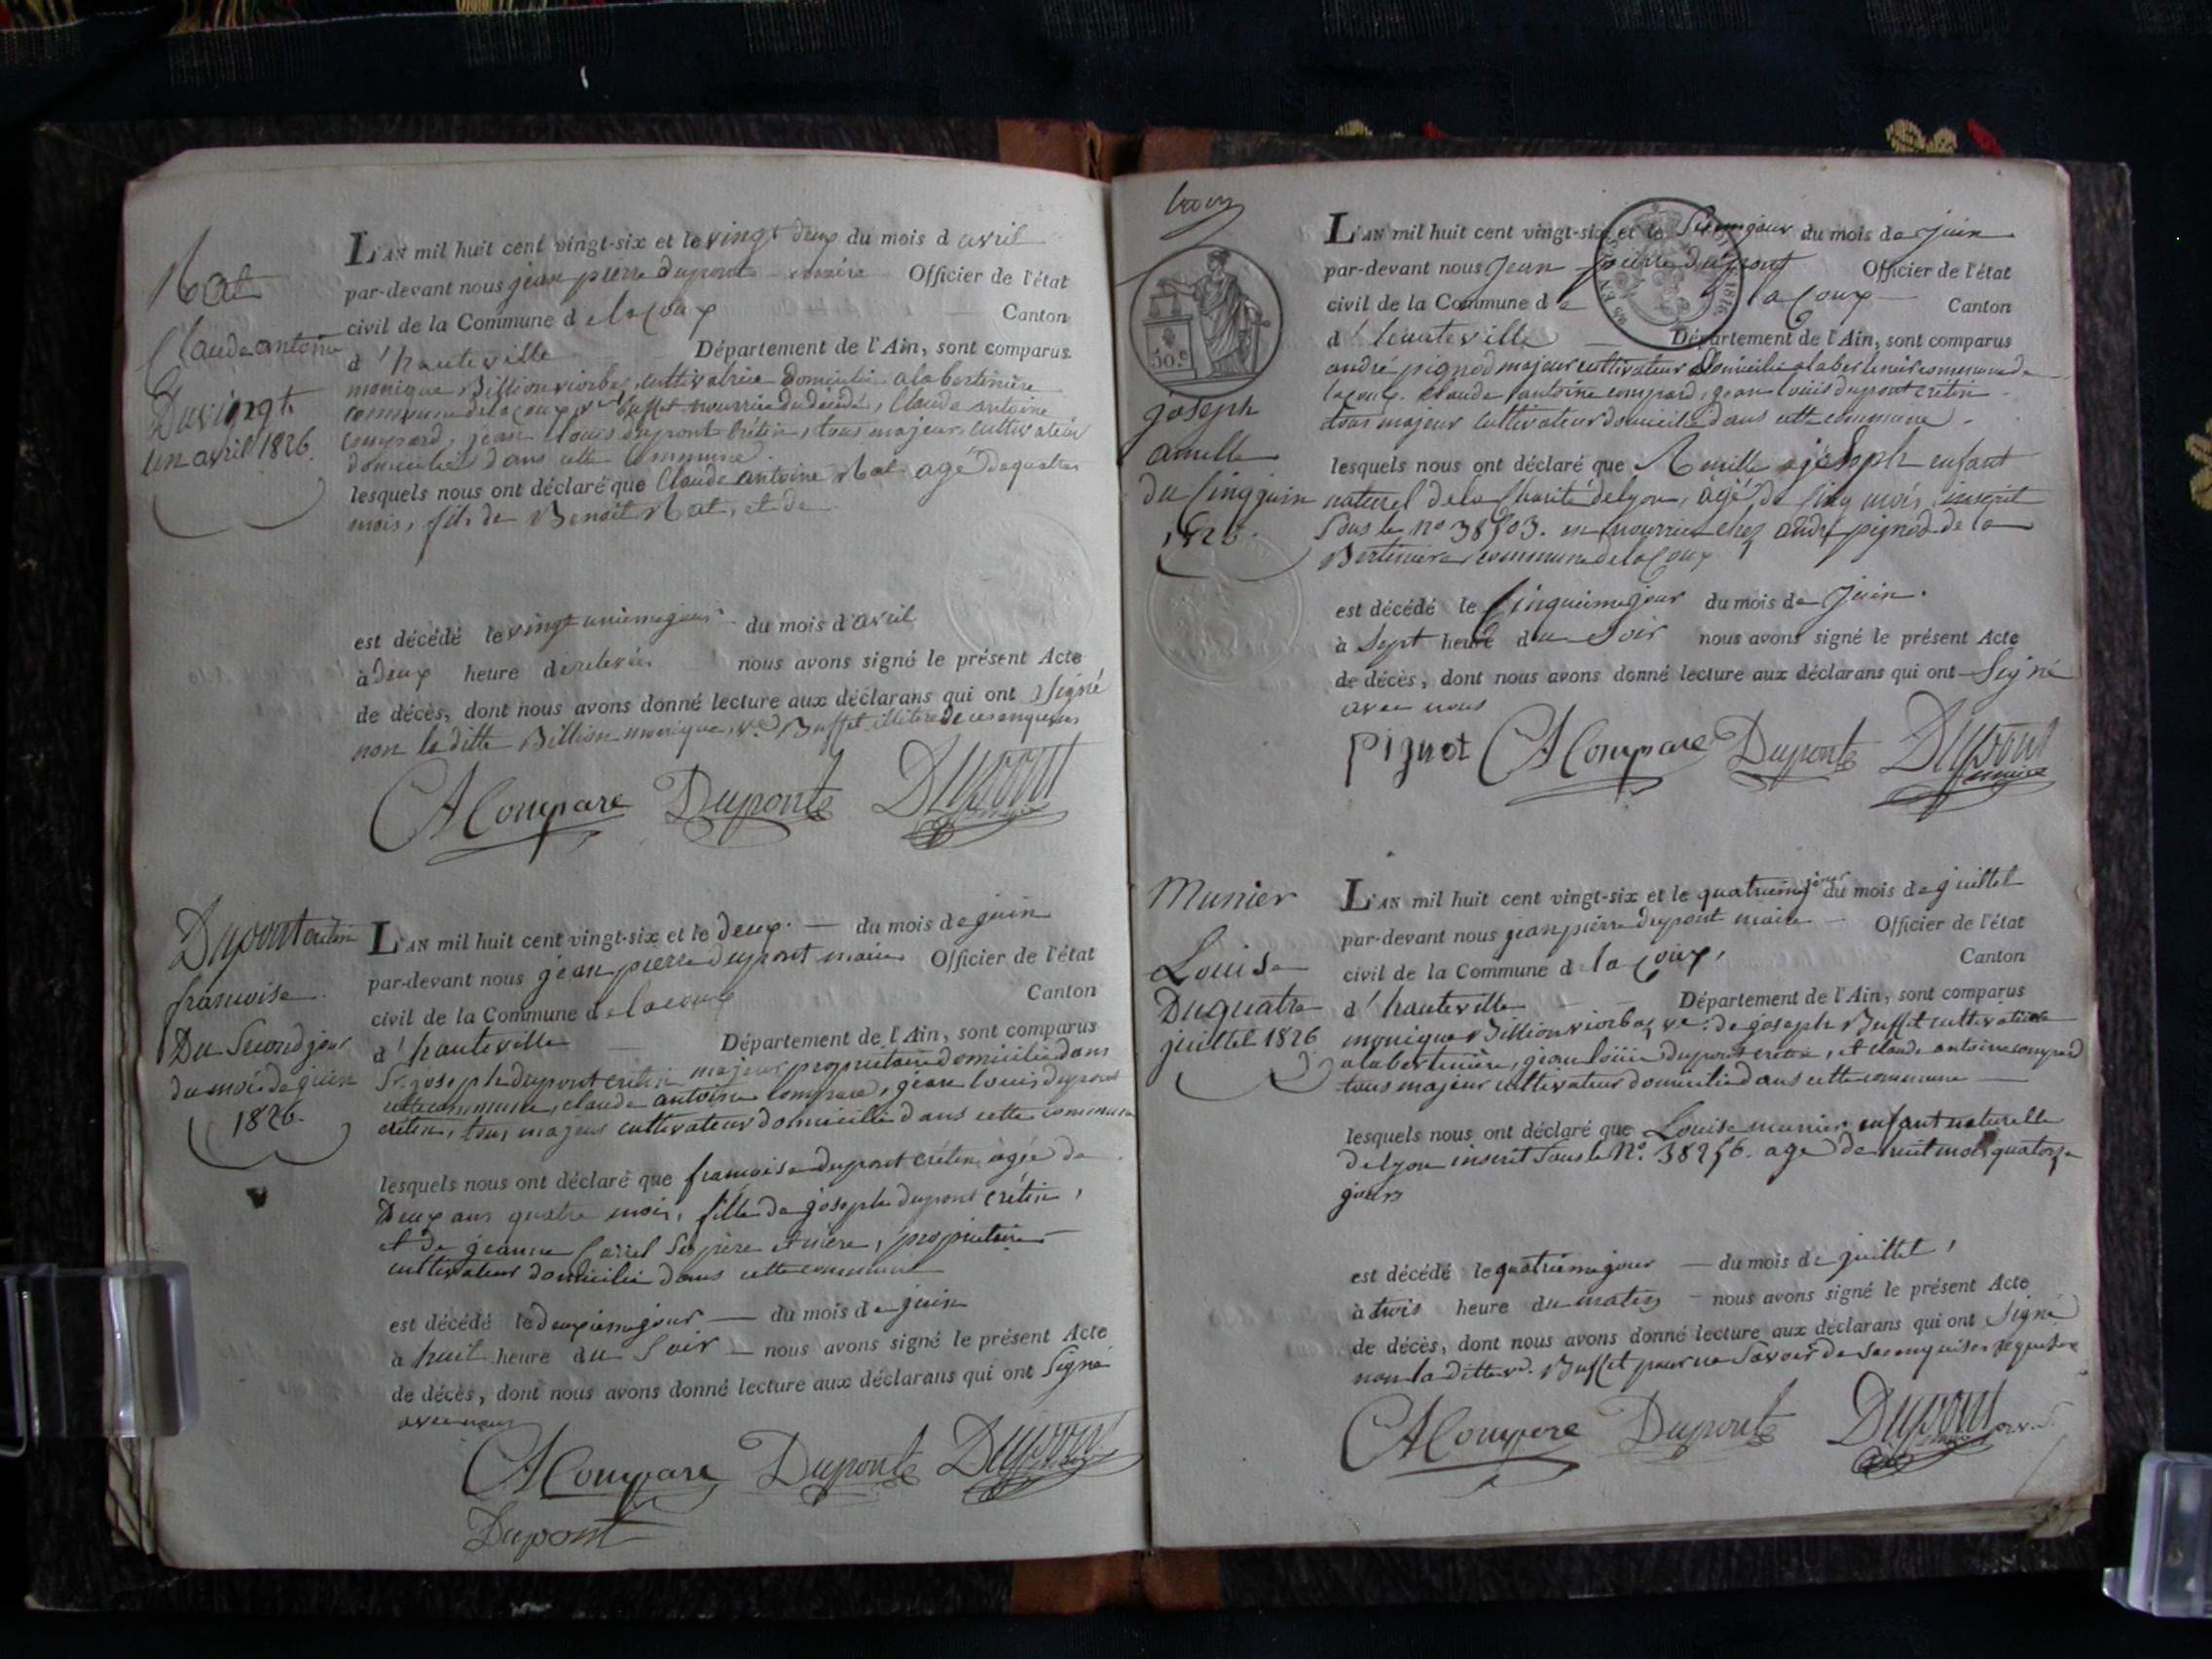 Nat
Claude antoine
Du vingt
un avril 1826.
L'AN mil huit cent vingt-six et le vingt deux du mois d avril
par-devant nous jean pierre dupont maire Officier de l'état
civil de la Commune d elacoux Canton
d'hauteville Département de l'Ain, sont comparus
monique Billion viorbas, cultivatrice domiciliée a la bertinière
commune de lacoux ve buffet nourrice du décédé, Claude antoine
compard, jean louis dupont crétin, tous majeur cultivateur
domiciliés dans cette commune.
lesquels nous ont déclaré que Claude antoine Nat agé de quatre
mois, fils de Benoit Nat, et de
est décédé le vingt unieme jour du mois d'avril
à deux heure de relevée nous avons signé le présent Acte
de décès, dont nous avons donné lecture aux déclarans qui ont signé
non la ditte Billion monique, ve Buffet illitere de ce enquise
CA Compare Duponte Dupont maire
Dupont crétin
francoise.
Du Second jour
du mois de juin
1826.
L'AN mil huit cent vingt-six et le deux. — du mois de juin
par-devant nous jean pierre dupont maire Officier de l'état
civil de la Commune de lacoux Canton
d'hauteville Département de l'Ain, sont comparus
Sr. joseph dupont crétin majeur propriétaire domicilié dans
cette commune, claude antoine compare, jean louis dupont
crétin, tous majeur cultivateur domicilié dans cette commune
lesquels nous ont déclaré que francoise dupont crétin âgée de
Deux ans quatre mois, fille de joseph dupont crétin,
et de jeanne Carrel Ses père et mère, propriétaire
cultivateur domicilié dans cette commune
est décédé le deuxieme jour — du mois de juin
à huit heure du Soir — nous avons signé le présent Acte
de décès, dont nous avons donné lecture aux déclarans qui ont Signé
avec nous
CA Compare Duponte Dupont
Dupont
50.c
joseph
amille
du Cinq juin
1826.
L'AN mil huit cent vingt-six et le Sixieme jour du mois de juin
par-devant nous Jean pierre Dupont Officier de l'état
civil de la Commune de lacoux Canton
d'hauteville Département de l'Ain, sont comparus
andré pignod majeur cultivateur Domicilié a la bertinière commune de
lacoux. claude antoine compard, jean louis dupont crétin
tous majeur cultivateur domicilié dans cette commune.
lesquels nous ont déclaré que Amille joseph enfant
naturel de la Charité de lyon, âgé de Cinq mois, inscrit
Sous le no 38503. en nourrice chez andré pignod de la
Bertinière commune de lacoux
est décédé le Cinquieme jour du mois de Juin.
à Sept heure du Soir nous avons signé le présent Acte
de décès, dont nous avons donné lecture aux déclarans qui ont Signé
avec nous
Pignot CA Compare Duponte Dupont maire
Munier
Louise
Du quatre
juillet 1826
L'AN mil huit cent vingt-six et le quatrieme jour du mois de juillet
par-devant nous jean pierre dupont maire Officier de l'état
civil de la Commune d lacoux, Canton
d'hauteville Département de l'Ain, sont comparus
monique Billion viorbas, ve. de joseph Buffet cultivatrice
a la bertinière, jean louis dupont crétin, et claude antoine compard
tous majeur cultivateur domicilié dans cette commune
lesquels nous ont déclaré que Louise munier enfant naturelle
de lyon inscrit Sous le No. 38256. agé de huit mois quatorze
jours
est décédé le quatrieme jour — du mois de juillet,
à trois heure du matin — nous avons signé le présent Acte
de décès, dont nous avons donné lecture aux déclarans qui ont Signé
non la ditte ve. Buffet pour ne Savoir de ce enquise requise
CA Compare Duponte Dupont